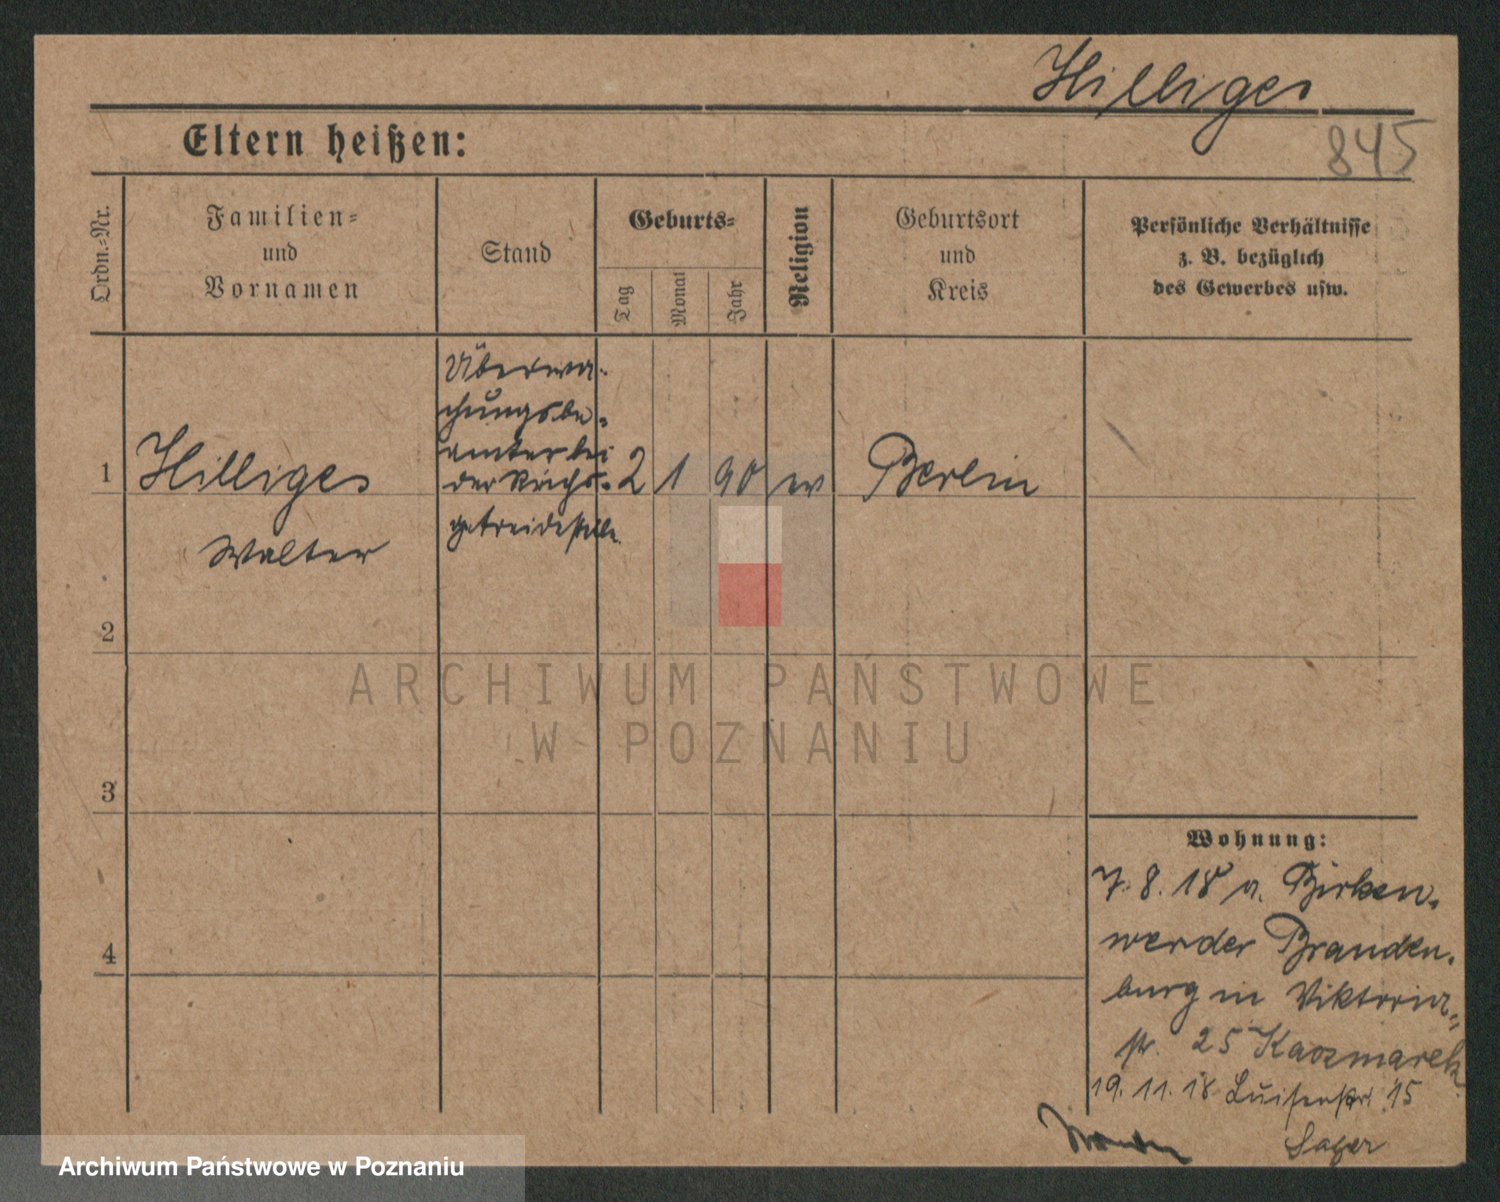 Hilliges
Eltern heißen:
845
Ordn.-Nr.
Familien-
und
Vornamen
Stand
Geburts-
Tag
Monat
Jahr
Religion
Geburtsort
und
Kreis
Persönliche Verhältnisse
z. B. bezüglich
des Gewerbes usw.
1
Hilliges
Walter
Überwa-
chungsbe-
amter bei
der Reichs-
getreidestelle
2 1 90 ev
Berlin
2
3
4
Wohnung:
7. 8. 18 a. Birken-
werder Branden-
burg in Viktoria-
str. 25 Kaczmarek
19. 11. 18 Luisenstr. 15
ARCHIWUM PAŃSTWOWE
W POZNANIU
Archiwum Państwowe w Poznaniu